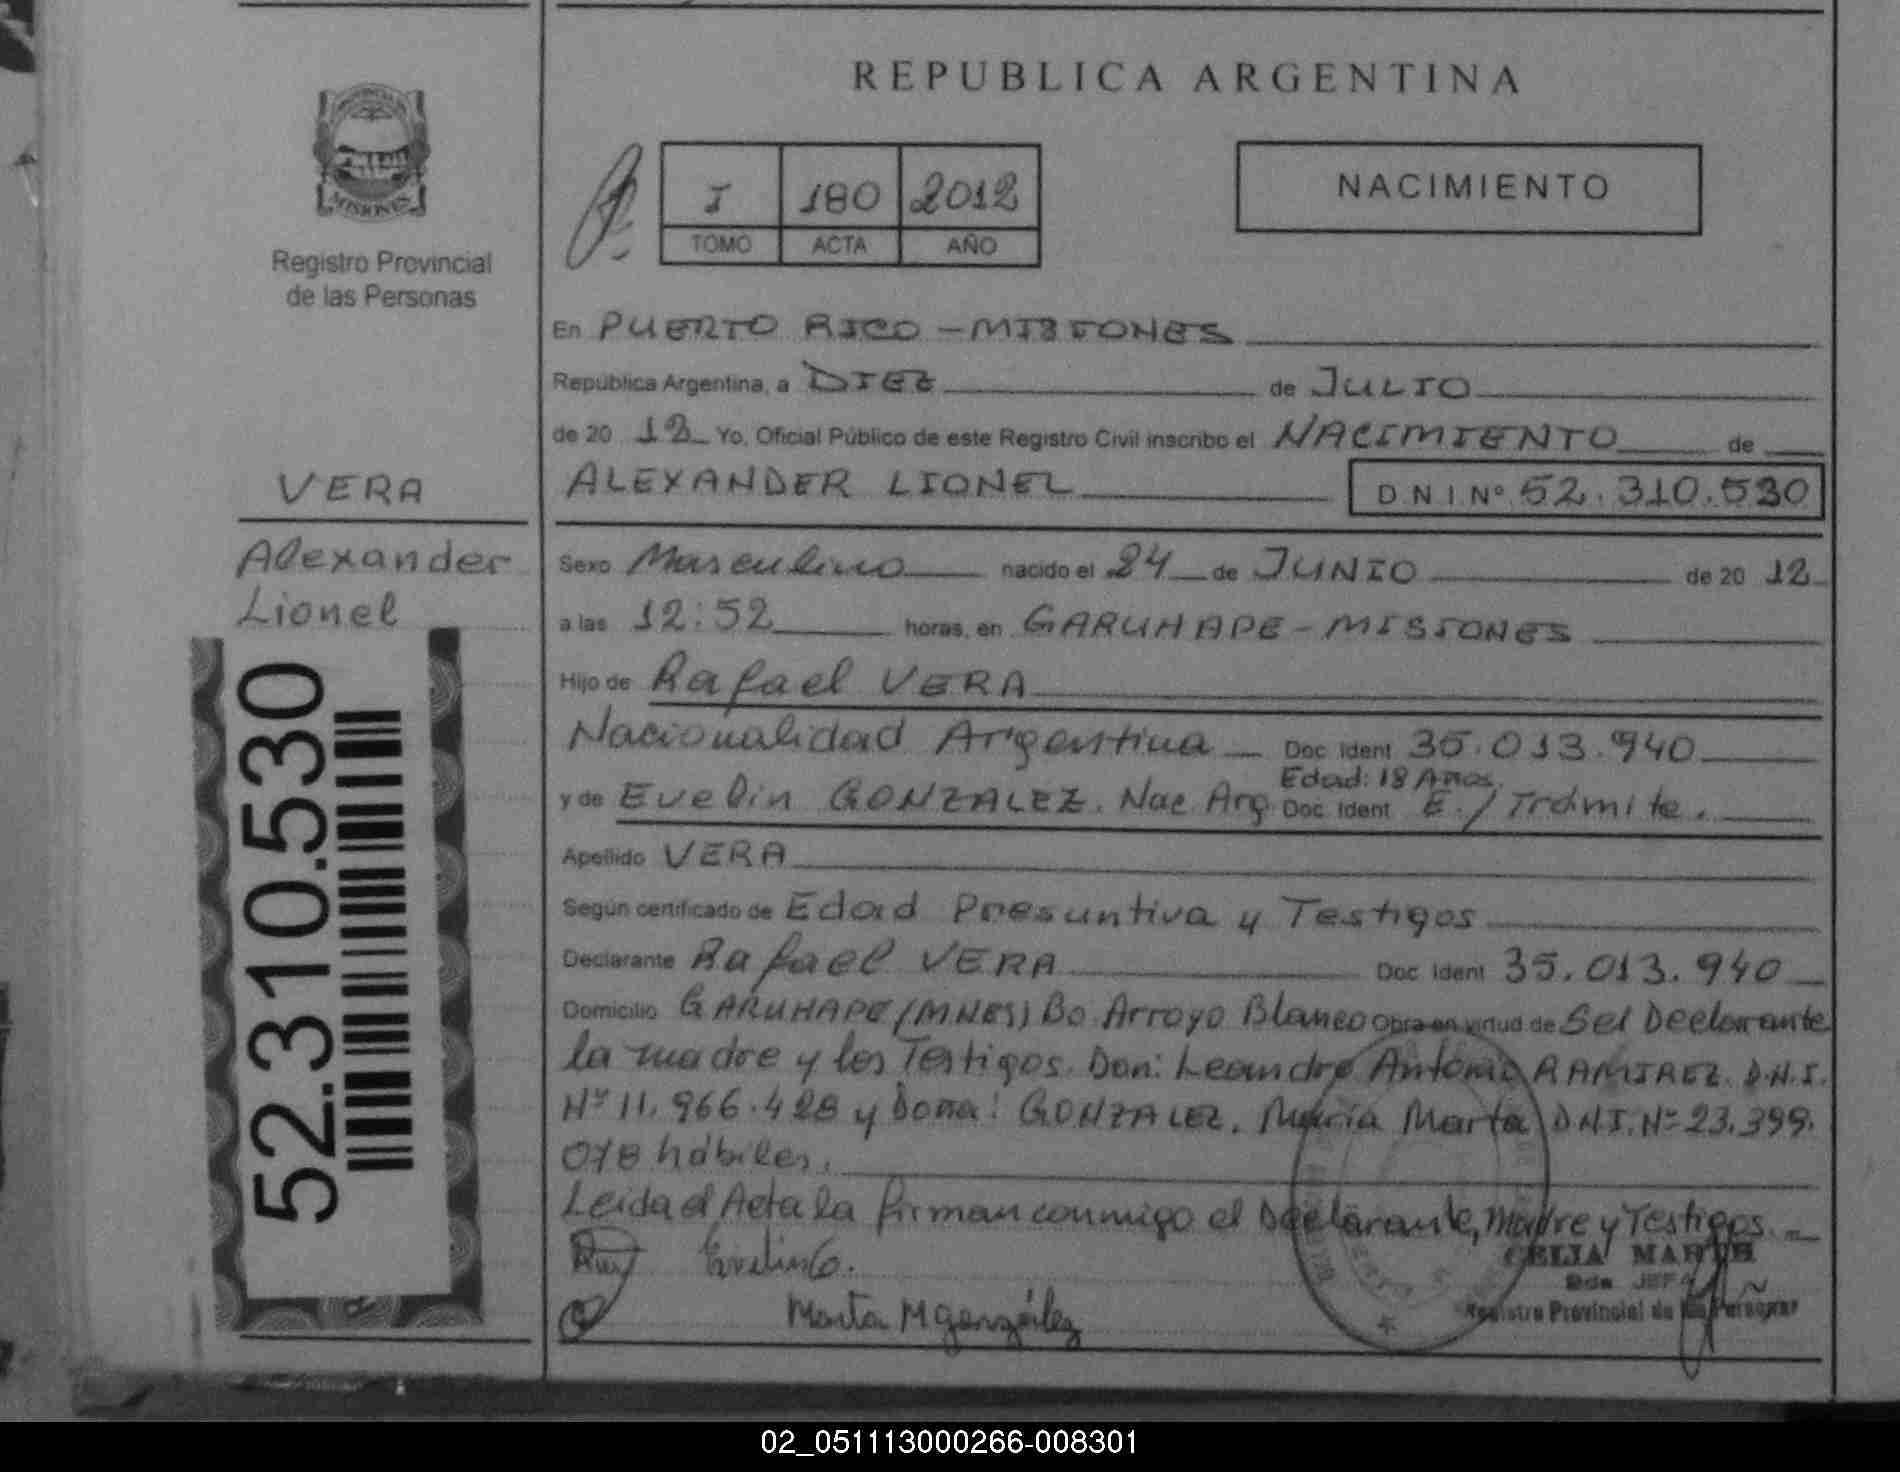 REPUBLICA ARGENTINA
MISIONES
Registro Provincial
de las Personas
I 180 2012
TOMO ACTA AÑO
NACIMIENTO
En PUERTO RICO - MISIONES
República Argentina, a DIEZ de JULIO
de 20 12 Yo, Oficial Público de este Registro Civil inscribo el NACIMIENTO de
VERA
ALEXANDER LIONEL D.N.I Nº 52.310.530
Alexander
Lionel
Sexo Masculino nacido el 24 de JUNIO de 20 12
a las 12:52 horas, en GARUHAPE - MISIONES
Hijo de Rafael VERA
Nacionalidad Argentina Doc Ident 35.013.940
Edad: 18 Años.
y de Evelin GONZALEZ. Nac. Arg. Doc Ident E./Trámite.
Apellido VERA
Según certificado de Edad Presuntiva y Testigos
Declarante Rafael VERA Doc Ident 35.013.940
Domicilio GARUHAPE (MNES) Bo Arroyo Blanco Obra en virtud de Sel Declarante
la madre y los Testigos. Don: Leandro Antonio RAMIREZ. D.N.I.
Nº 11.966.428 y Doña: GONZALEZ. María Marta D.N.I. Nº 23.399.
078 hábiles.
Leida el Acta la firman conmigo el Declarante, Madre y Testigos.
Evelin G.
Marta M gonzález
CELIA
2da JEFA
Registro Provincial de las Personas
52.310.530
02_051113000266-008301